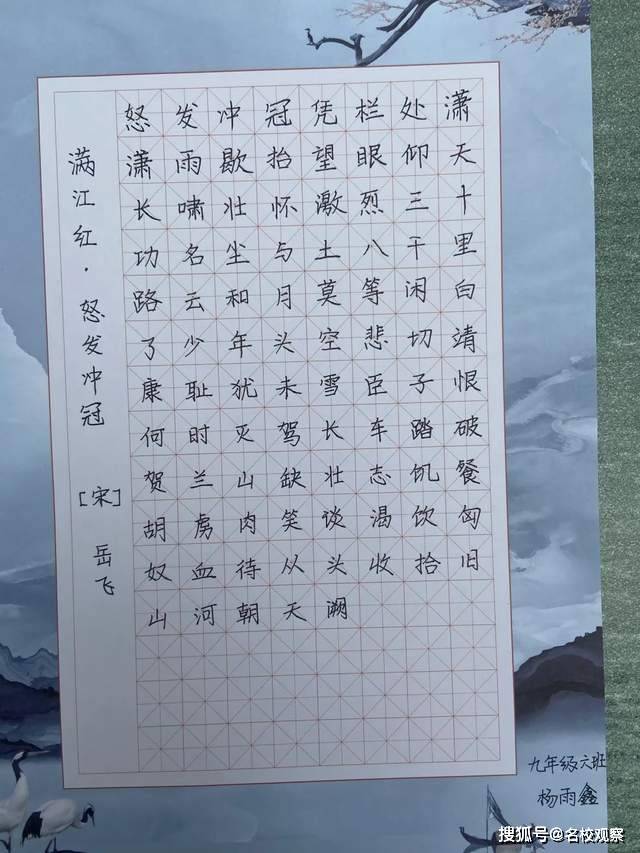 满江红·怒发冲冠 [宋] 岳飞
怒发冲冠凭栏处潇
潇雨歇抬望眼仰天
长啸壮怀激烈三十
功名尘与土八千里
路云和月莫等闲白
了少年头空悲切靖
康耻犹未雪臣子恨
何时灭驾长车踏破
贺兰山缺壮志饥餐
胡虏肉笑谈渴饮匈
奴血待从头收拾旧
山河朝天阙
九年级六班
杨雨鑫
搜狐号@名校观察